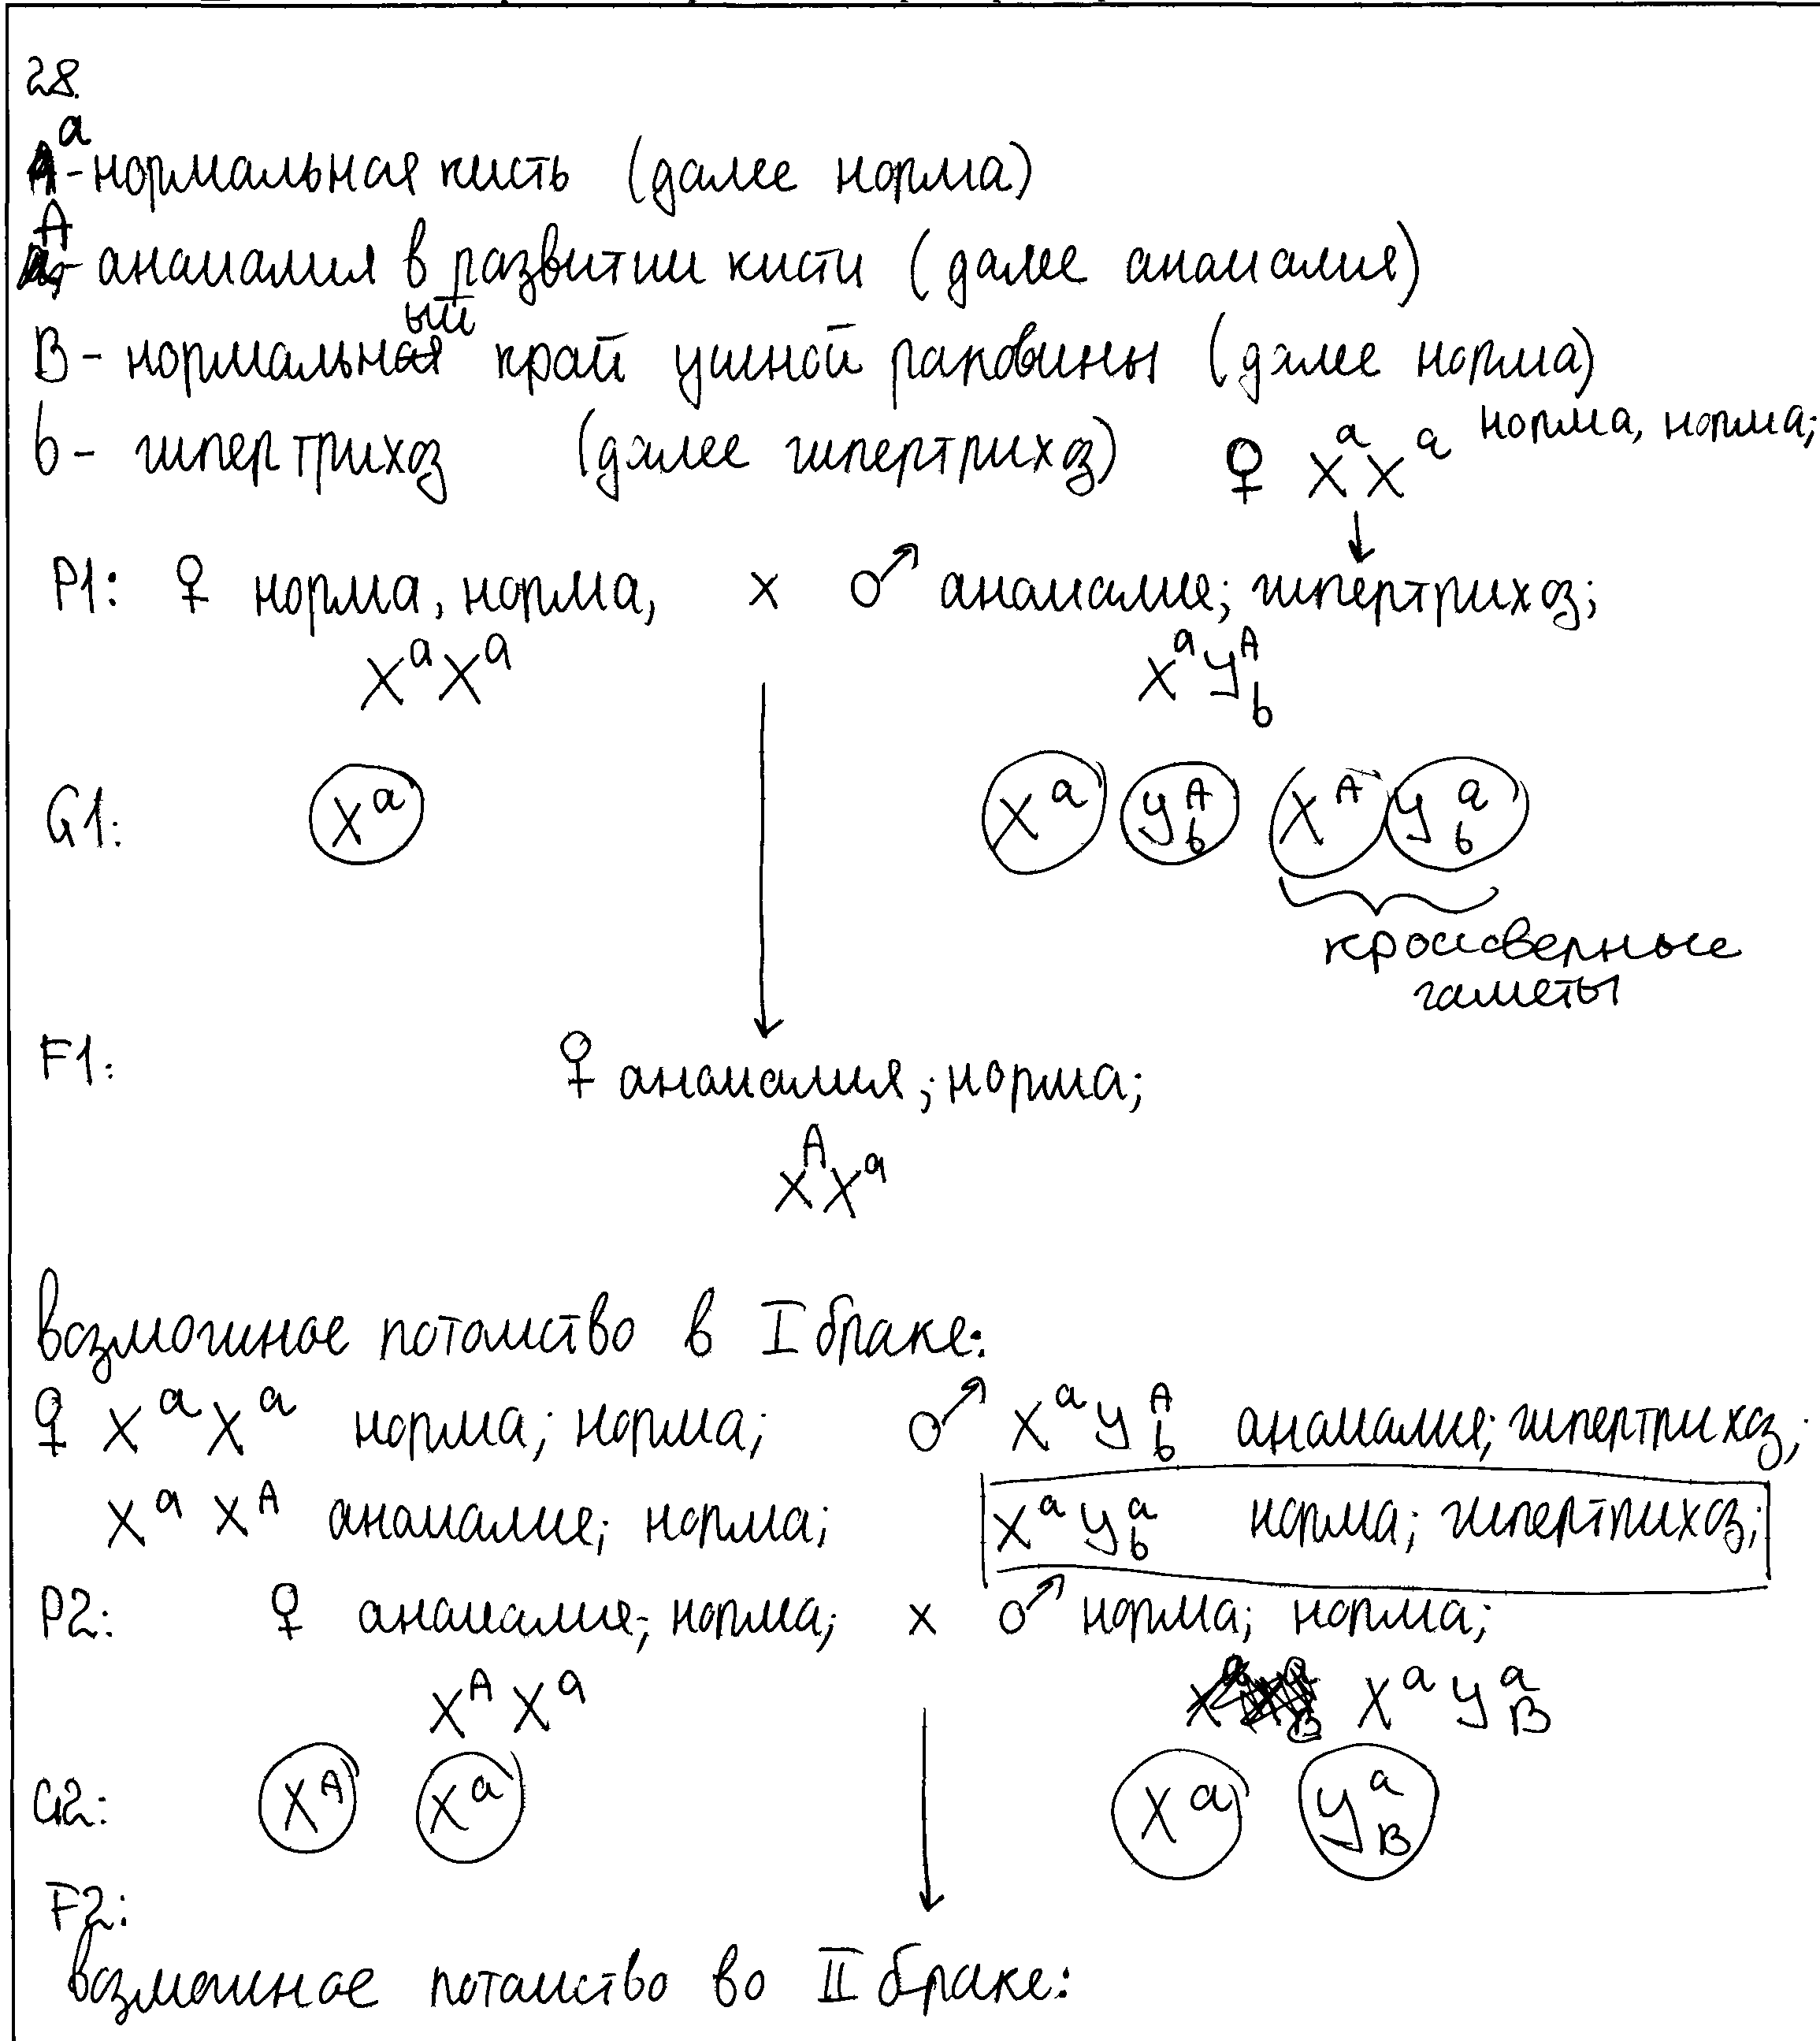 28.
a - нормальная кисть (далее норма)
A - аномалия в развитии кисти (далее аномалия)
B - нормальный край ушной раковины (далее норма)
b - гипертрихоз (далее гипертрихоз) ♀ XᵃXᵃ норма, норма;
↓
P1: ♀ норма, норма, x ♂ аномалия; гипертрихоз;
XᵃXᵃ XᵃYᴬb
G1: Xᵃ Xᵃ Yᴬb Xᴬ Yᵃb
кроссверные
гаметы
F1: ♀ аномалия; норма;
XᴬXᵃ
возможное потомство в I браке:
♀ XᵃXᵃ норма; норма; ♂ XᵃYᴬb аномалия; гипертрихоз;
XᵃXᴬ аномалия; норма; XᵃYᵃb норма; гипертрихоз;
P2: ♀ аномалия; норма; x ♂ норма; норма;
XᴬXᵃ XᵃYᵃB
G2: Xᴬ Xᵃ Xᵃ YᵃB
F2:
возможное потомство во II браке: